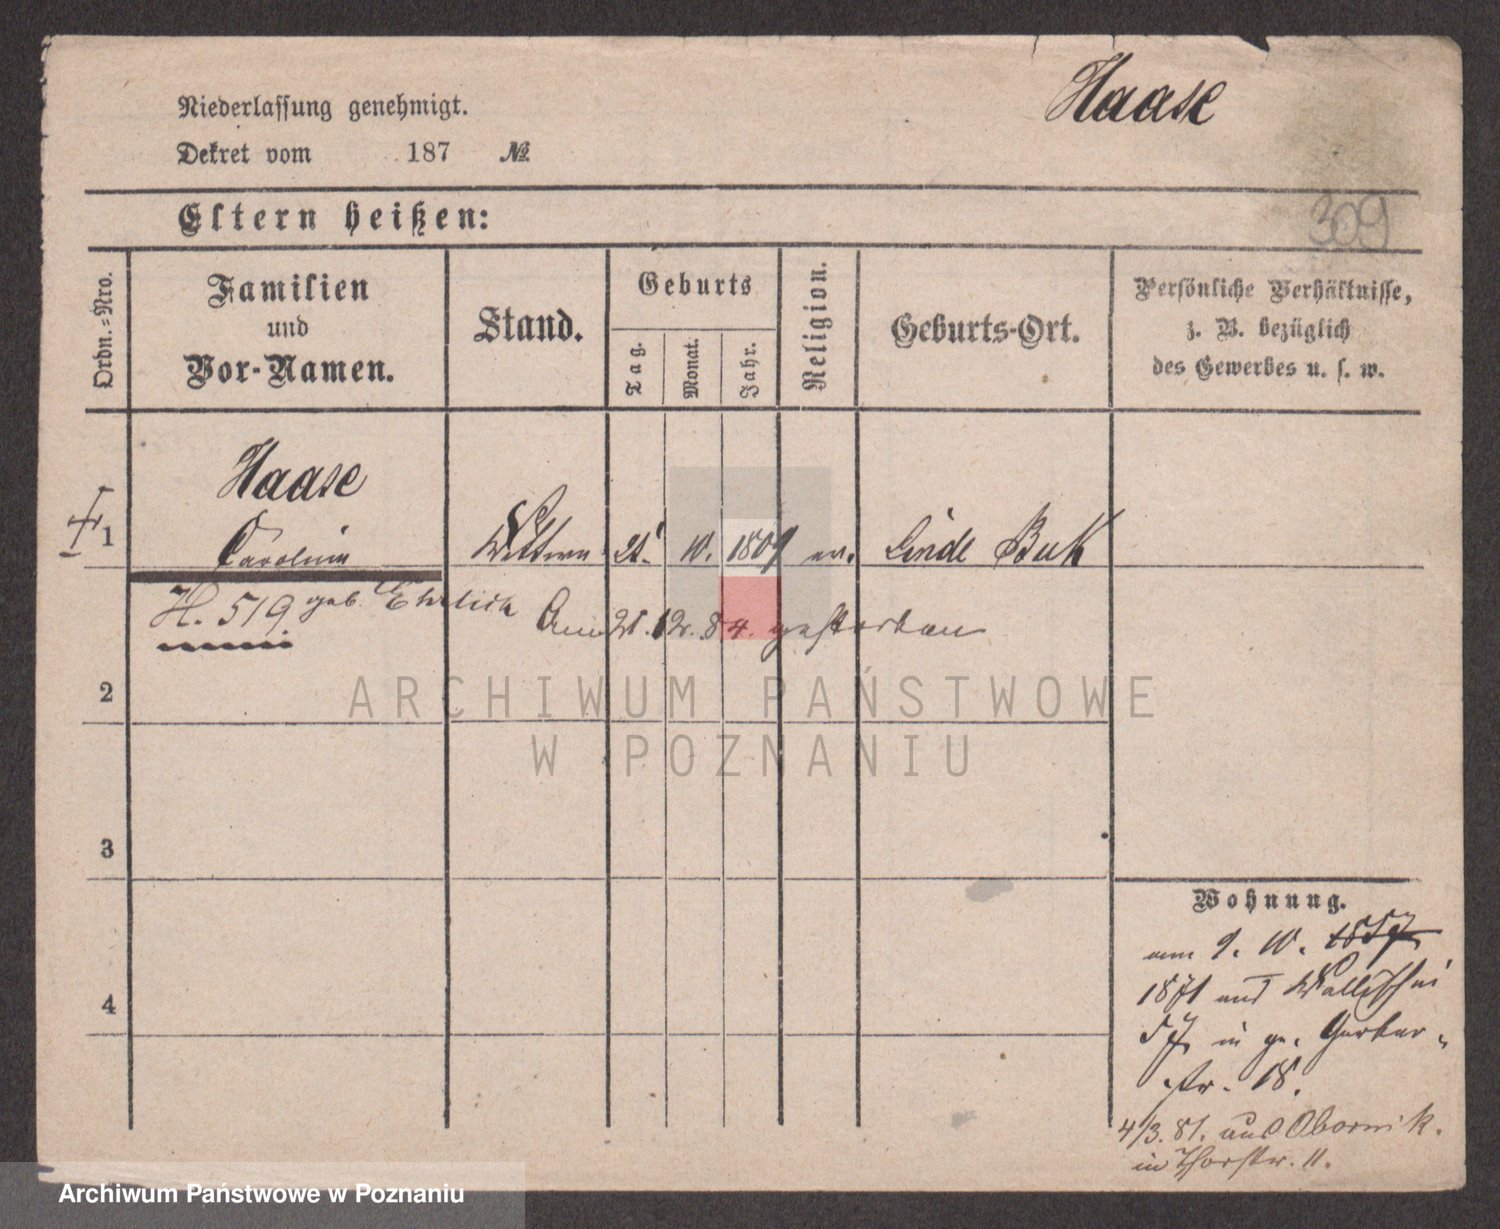 Haase
Niederlassung genehmigt.
Dekret vom 187 №
309
Eltern heißen:
Ordn.=Nro.
Familien
und
Vor-Namen.
Stand.
Geburts
Tag.
Monat.
Jahr.
Religion.
Geburts-Ort.
Persönliche Verhältnisse,
z. B. bezüglich
des Gewerbes u. s. w.
1
Haase
Caroline
Wittwe 21. 10. 1809 ev. Linde Buk
H. 519 geb. Ehrlich
Am 21. 12. 84. gestorben
2
3
4
Wohnung.
am 9. 10. 1857
1871 aus Wallischei
57 in gr. Gerber-
str. 18.
4/3. 81. aus Obornik.
in Thorstr. 11.
ARCHIWUM PAŃSTWOWE
W POZNANIU
Archiwum Państwowe w Poznaniu